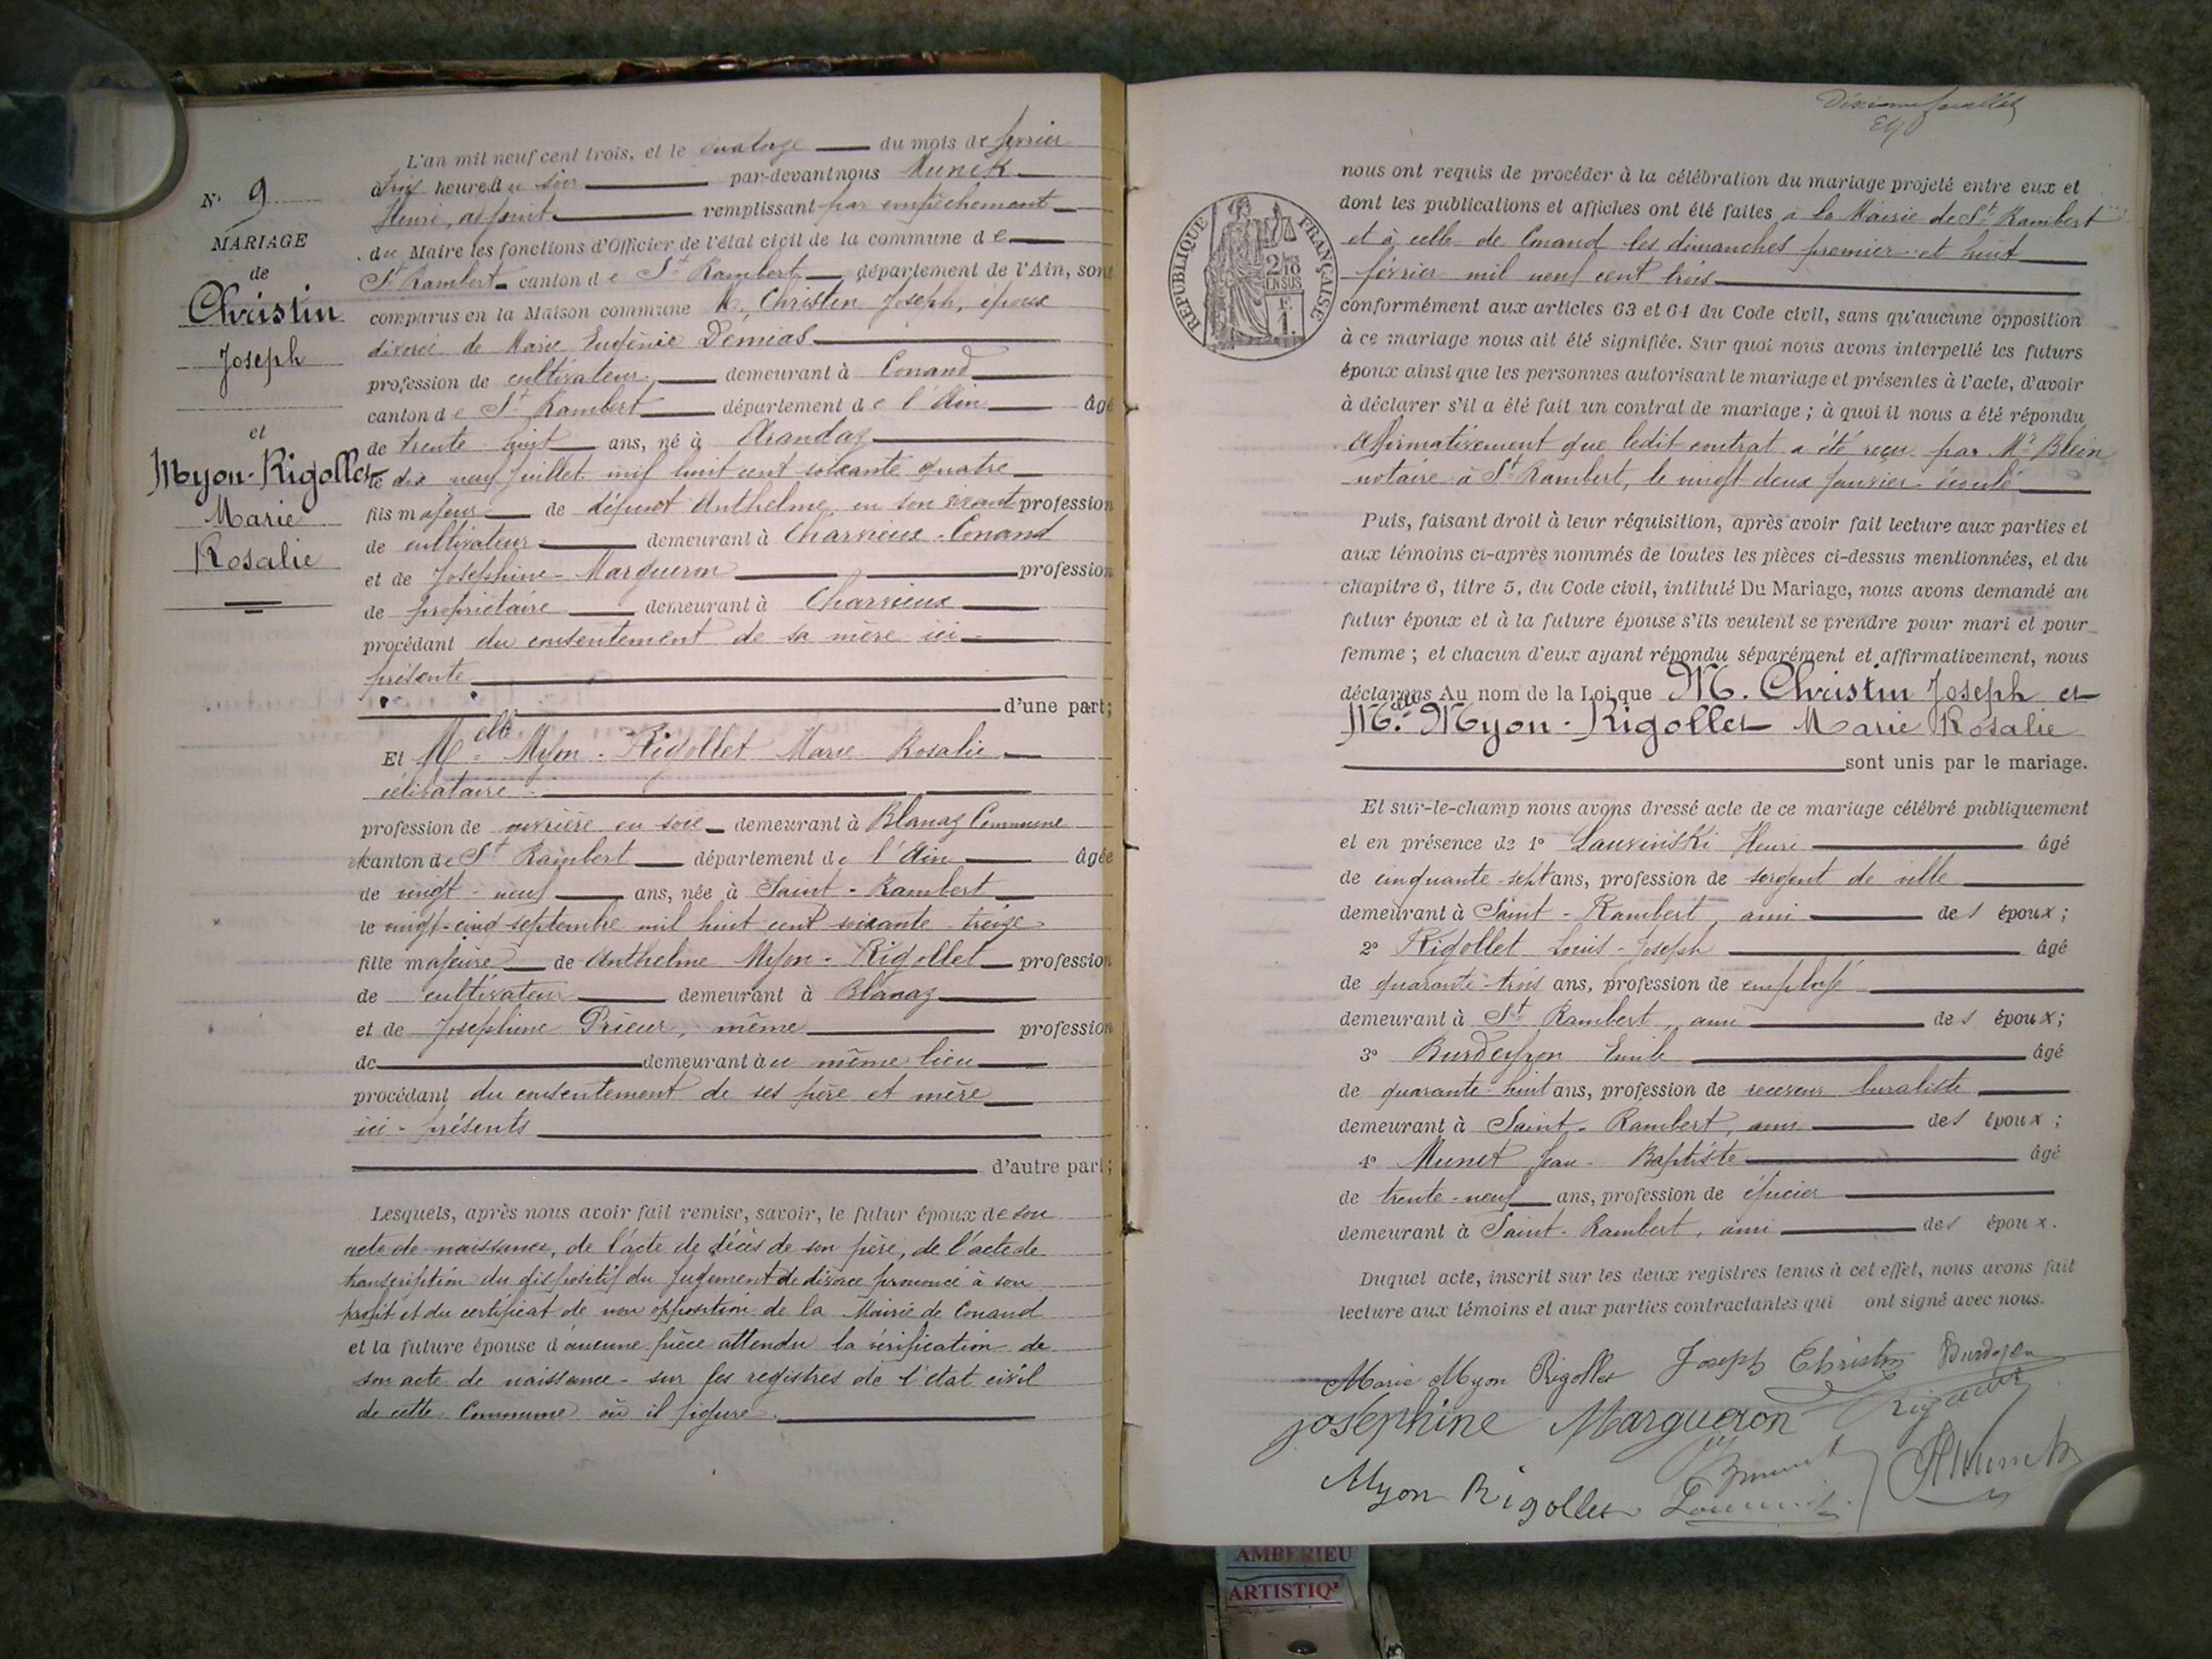 N° 9
MARIAGE
de
Christin
Joseph
et
Myon-Rigollet
Marie
Rosalie
L'an mil neuf cent trois, et le quatorze du mois de février
à trois heures du soir par-devant nous Munck
Henri, adjoint remplissant par empêchement
du Maire les fonctions d'Officier de l'état civil de la commune de
St Rambert canton de St Rambert département de l'Ain, sont
comparus en la Maison commune M. Christin Joseph, époux
divorcé de Marie Eugénie Démias
profession de cultivateur, demeurant à Conand
canton de St Rambert département de l'Ain âgé
de trente huit ans, né à Arandas
le dix neuf juillet mil huit cent soixante quatre
fils majeur de défunt Anthelme en son vivant profession
de cultivateur demeurant à Charvieux-Conand
et de Joséphine Margueron profession
de propriétaire demeurant à Charvieux
procédant du consentement de sa mère ici
présente
d'une part;
Et Melle Myon-Rigollet Marie Rosalie
célibataire
profession de ouvrière en soie demeurant à Blanaz Commune
& canton de St Rambert département de l'Ain âgée
de vingt-neuf ans, née à Saint-Rambert
le vingt-cinq septembre mil huit cent soixante-treize
fille majeure de Anthelme Myon-Rigollet profession
de cultivateur demeurant à Blanaz
et de Joséphine Prieur, même profession
de demeurant au même lieu
procédant du consentement de ses père et mère
ici-présents
d'autre part;
Lesquels, après nous avoir fait remise, savoir, le futur époux de son
acte de naissance, de l'acte de décès de son père, de l'acte de
transcription du dispositif du jugement de divorce prononcé à son
profit et du certificat de non opposition de la Mairie de Conand
et la future épouse d'aucune pièce attendu la vérification de
son acte de naissance sur les registres de l'état civil
de cette Commune où il figure.
RÉPUBLIQUE FRANÇAISE
2/10
EN SUS
1 F.
nous ont requis de procéder à la célébration du mariage projeté entre eux et
dont les publications et affiches ont été faites à la Mairie de St Rambert
et à celle de Conand les dimanches premier et huit
février mil neuf cent trois
conformément aux articles 63 et 64 du Code civil, sans qu'aucune opposition
à ce mariage nous ait été signifiée. Sur quoi nous avons interpellé les futurs
époux ainsi que les personnes autorisant le mariage et présentes à l'acte, d'avoir
à déclarer s'il a été fait un contrat de mariage ; à quoi il nous a été répondu
affirmativement que ledit contrat a été reçu par Me Blein
notaire à St Rambert, le vingt deux janvier écoulé
Puis, faisant droit à leur réquisition, après avoir fait lecture aux parties et
aux témoins ci-après nommés de toutes les pièces ci-dessus mentionnées, et du
chapitre 6, titre 5, du Code civil, intitulé Du Mariage, nous avons demandé au
futur époux et à la future épouse s'ils veulent se prendre pour mari et pour
femme ; et chacun d'eux ayant répondu séparément et affirmativement, nous
déclarons Au nom de la Loi que M. Christin Joseph et
Melle Myon-Rigollet Marie Rosalie
sont unis par le mariage.
Et sur-le-champ nous avons dressé acte de ce mariage célébré publiquement
et en présence de 1° Lauvinski Henri âgé
de cinquante-sept ans, profession de sergent de ville
demeurant à Saint-Rambert, ami des époux ;
2° Rigollet Louis-Joseph âgé
de quarante-trois ans, profession de employé
demeurant à St Rambert, ami des époux ;
3° Burdeyron Emile âgé
de quarante-huit ans, profession de receveur buraliste
demeurant à Saint-Rambert, ami des époux ;
4° Munet Jean-Baptiste âgé
de trente-neuf ans, profession de épicier
demeurant à Saint-Rambert, ami des époux.
Duquel acte, inscrit sur les deux registres tenus à cet effet, nous avons fait
lecture aux témoins et aux parties contractantes qui ont signé avec nous.
Marie Myon Rigollet Joseph Christin Burdeyron
joséphine Margueron Rigollet
Myon Rigollet HMunck
AMBERIEU
ARTISTIQ